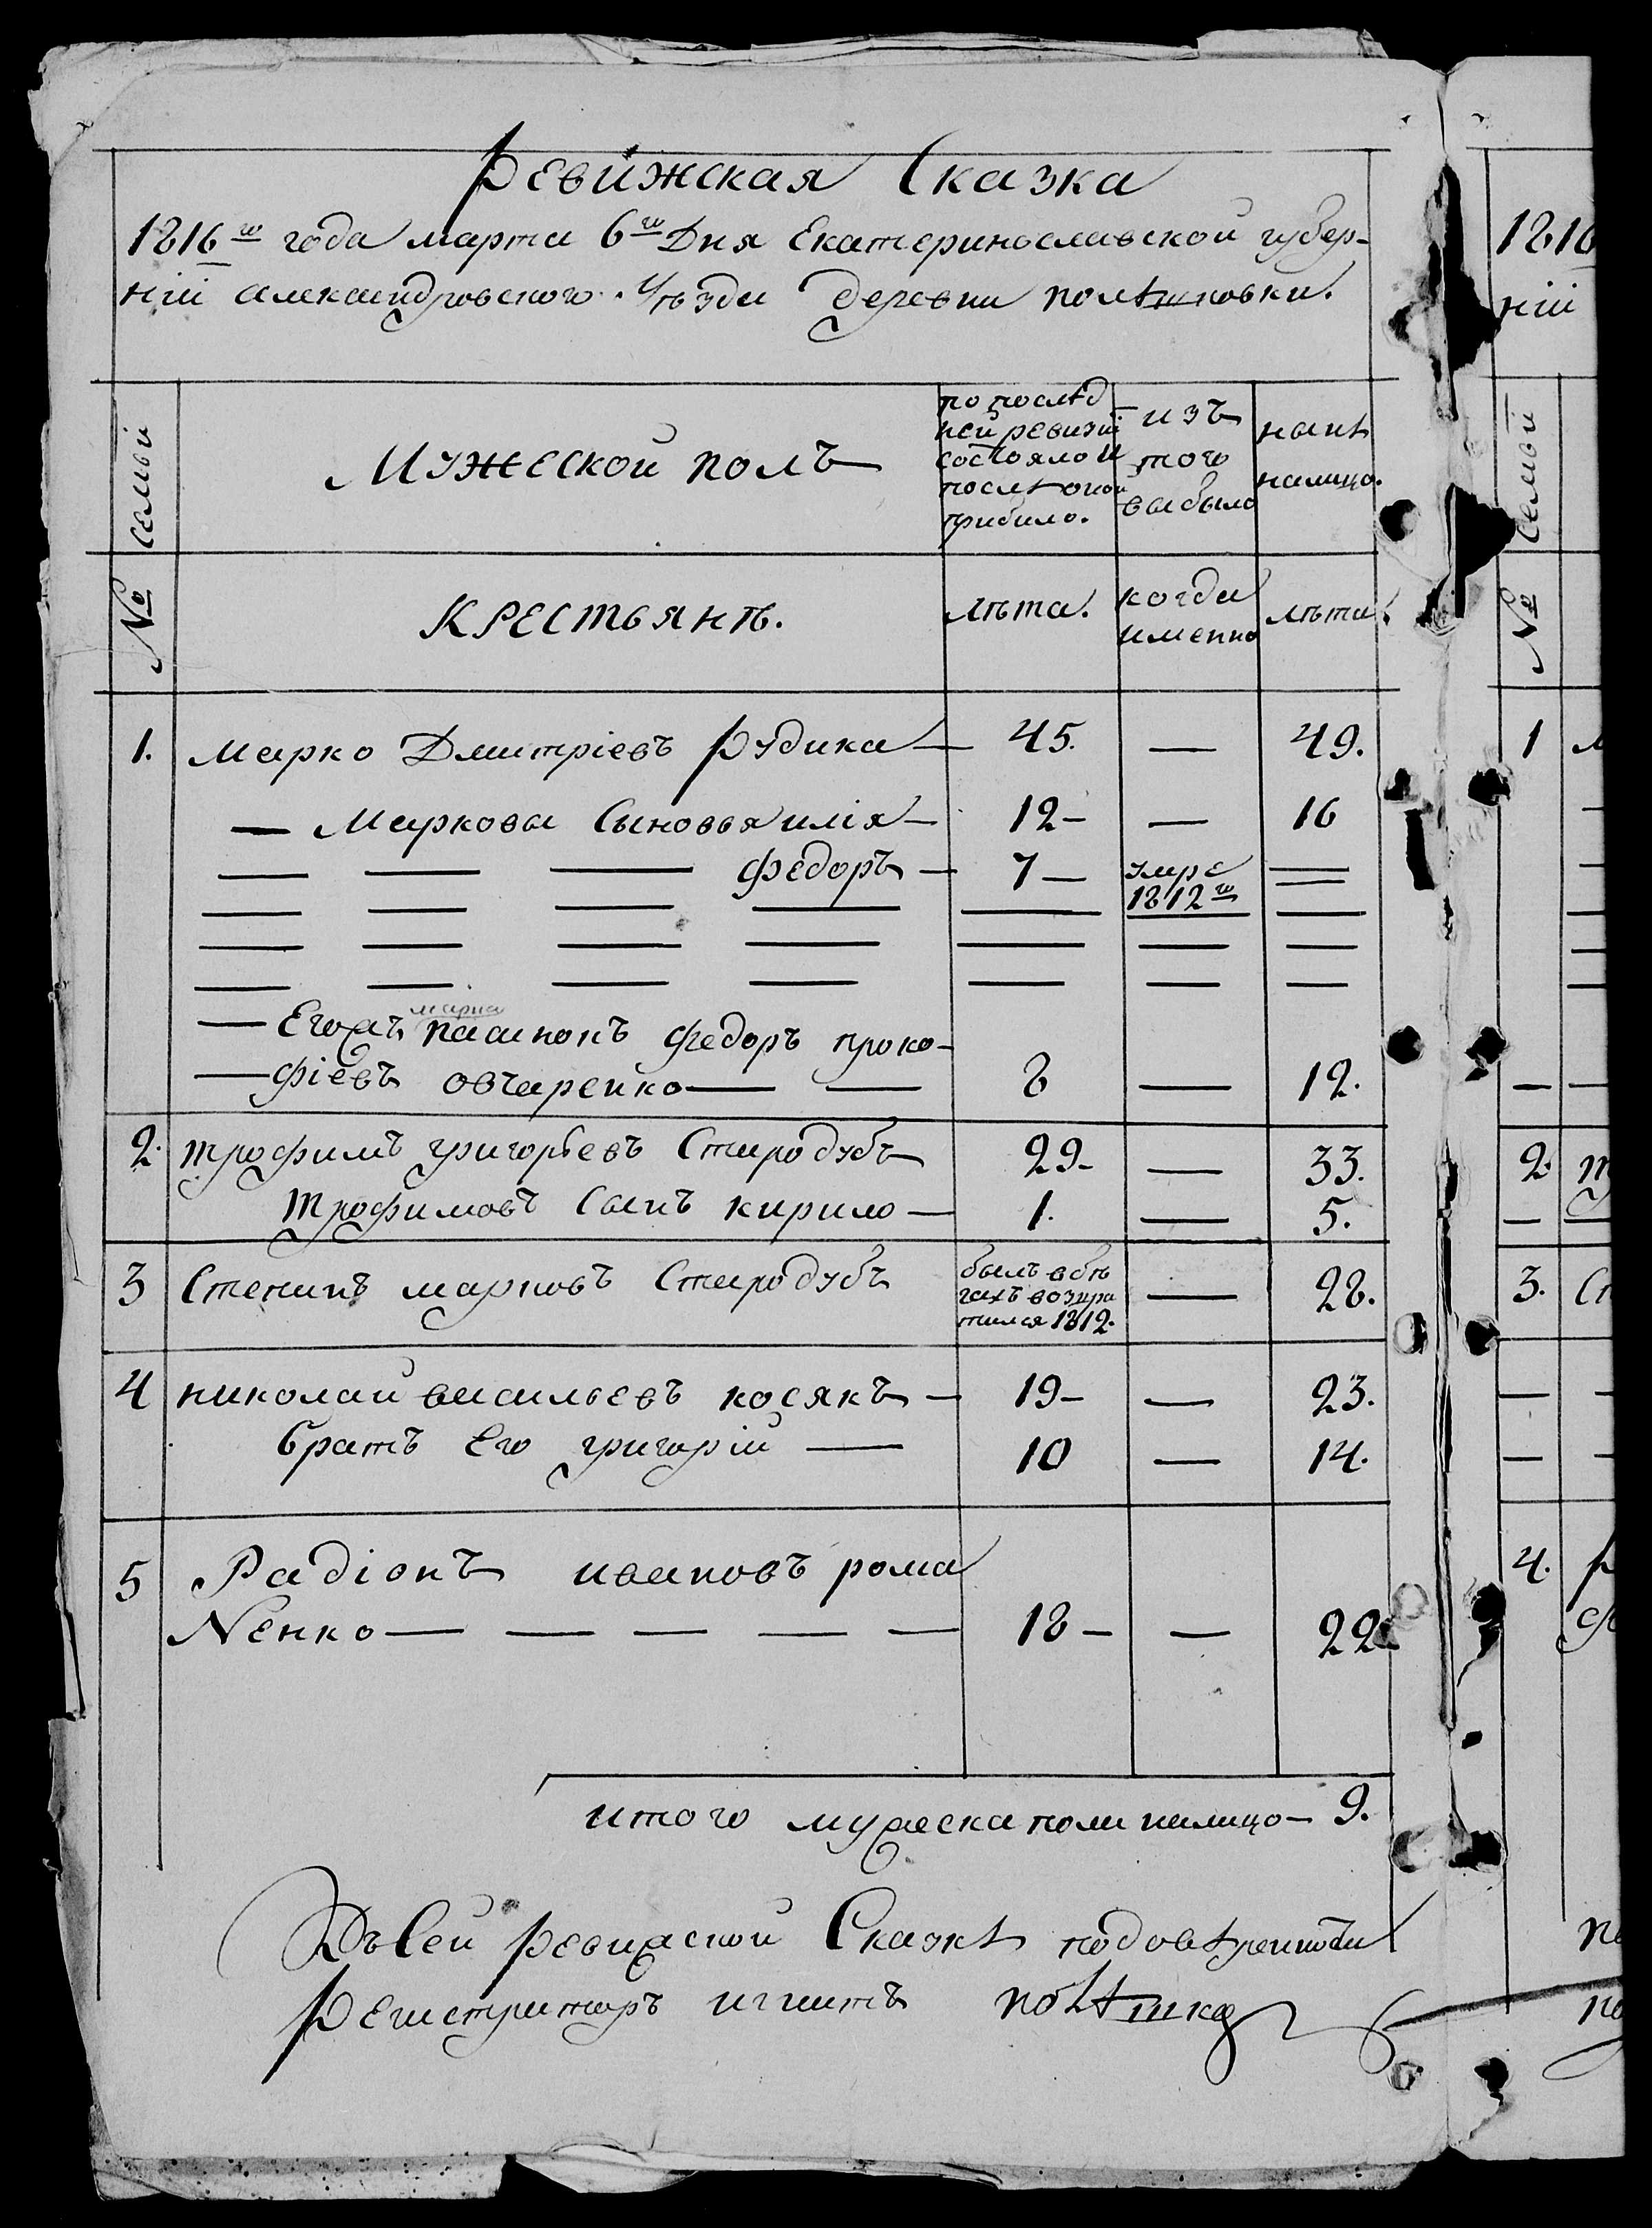 Ревижская Сказка
1816го года марта 6го Дня Екатеринославской губер-
нiи александровского уѣзда деревни полѣтковки.
№ семьи
Мужеской полъ
по послѣд
ней ревизiи
состояло и
послѣ оной
прибило.
изъ
того
выбыло
нынѣ
налицо.
Крестьянѣ.
лѣта.
когда
именно
лѣта.
1. Марко Дмитрiевъ Рудика — 45. — 49.
— Марковы Сыновья илiя — 12 — — 16
— — — федоръ — 7 — умре
1812го
— Егожъ
федоръ проко-
— фiевъ овчаренко — — 8 — 12.
2. трофимъ григорьевъ Стародубъ 29 — — 33.
Трофимовъ Сынъ кирило — 1. — 5.
3 Степанъ марковъ Стародубъ былъ вбѣ
гахъ возвра
тился 1812. — 28.
4 николай васильевъ косякъ — 19 — — 23.
братъ Его григорiй — 10 — 14.
5 Радiонъ ивановъ рома
Ненко — — — — — 18 — — 22
итого мужеска пола налицо — 9.
Къ Сей ревижской Сказкѣ
Регистраторъ игнатъ
1816
нiи
№ семьи
1
2.
3.
4.